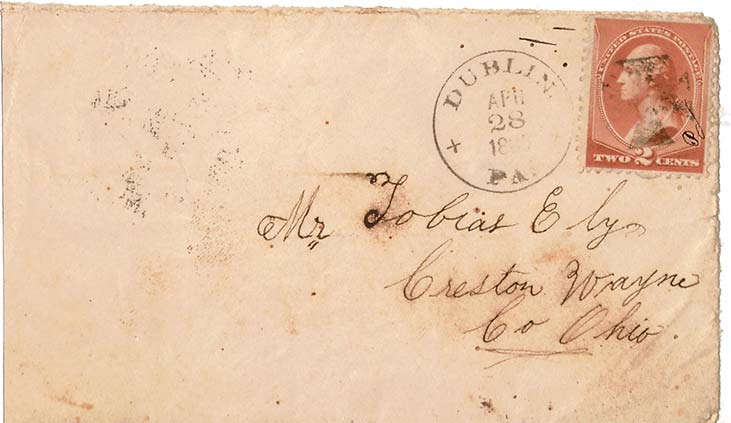 DUBLIN
APR
28
PA.
UNITED STATES POSTAGE
TWO 2 CENTS
Mr Tobias Ely
Creston Wayne
Co Ohio.